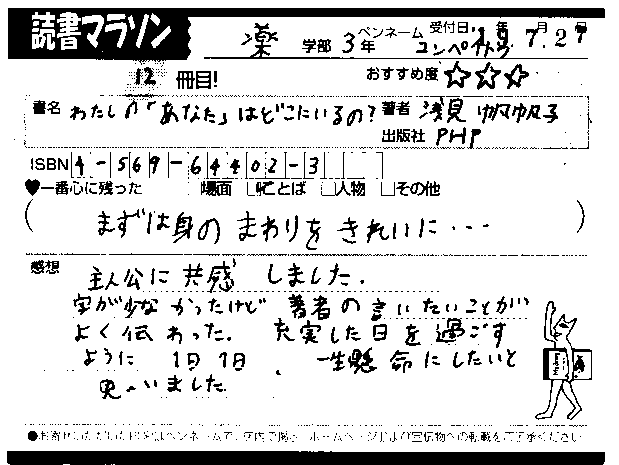 読書マラソン
薬 学部 3年 ペンネーム コンペイトウ 受付日 年 7月 27日
12 冊目! おすすめ度 ☆☆☆
書名 わたしの「あなた」はどこにいるの? 著者 浅見 帆帆子
出版社 PHP
ISBN 4-569-64402-3
♥一番心に残った □場面 □ことば □人物 □その他
(まずは身の まわりを きれいに・・・)
感想 主人公に 共感 しました.
字が少な かったけど 著者の 言いたいことが
よく伝 わった. 充実した日を過ごす
ように 1日1日、一生懸命にしたいと
思いました